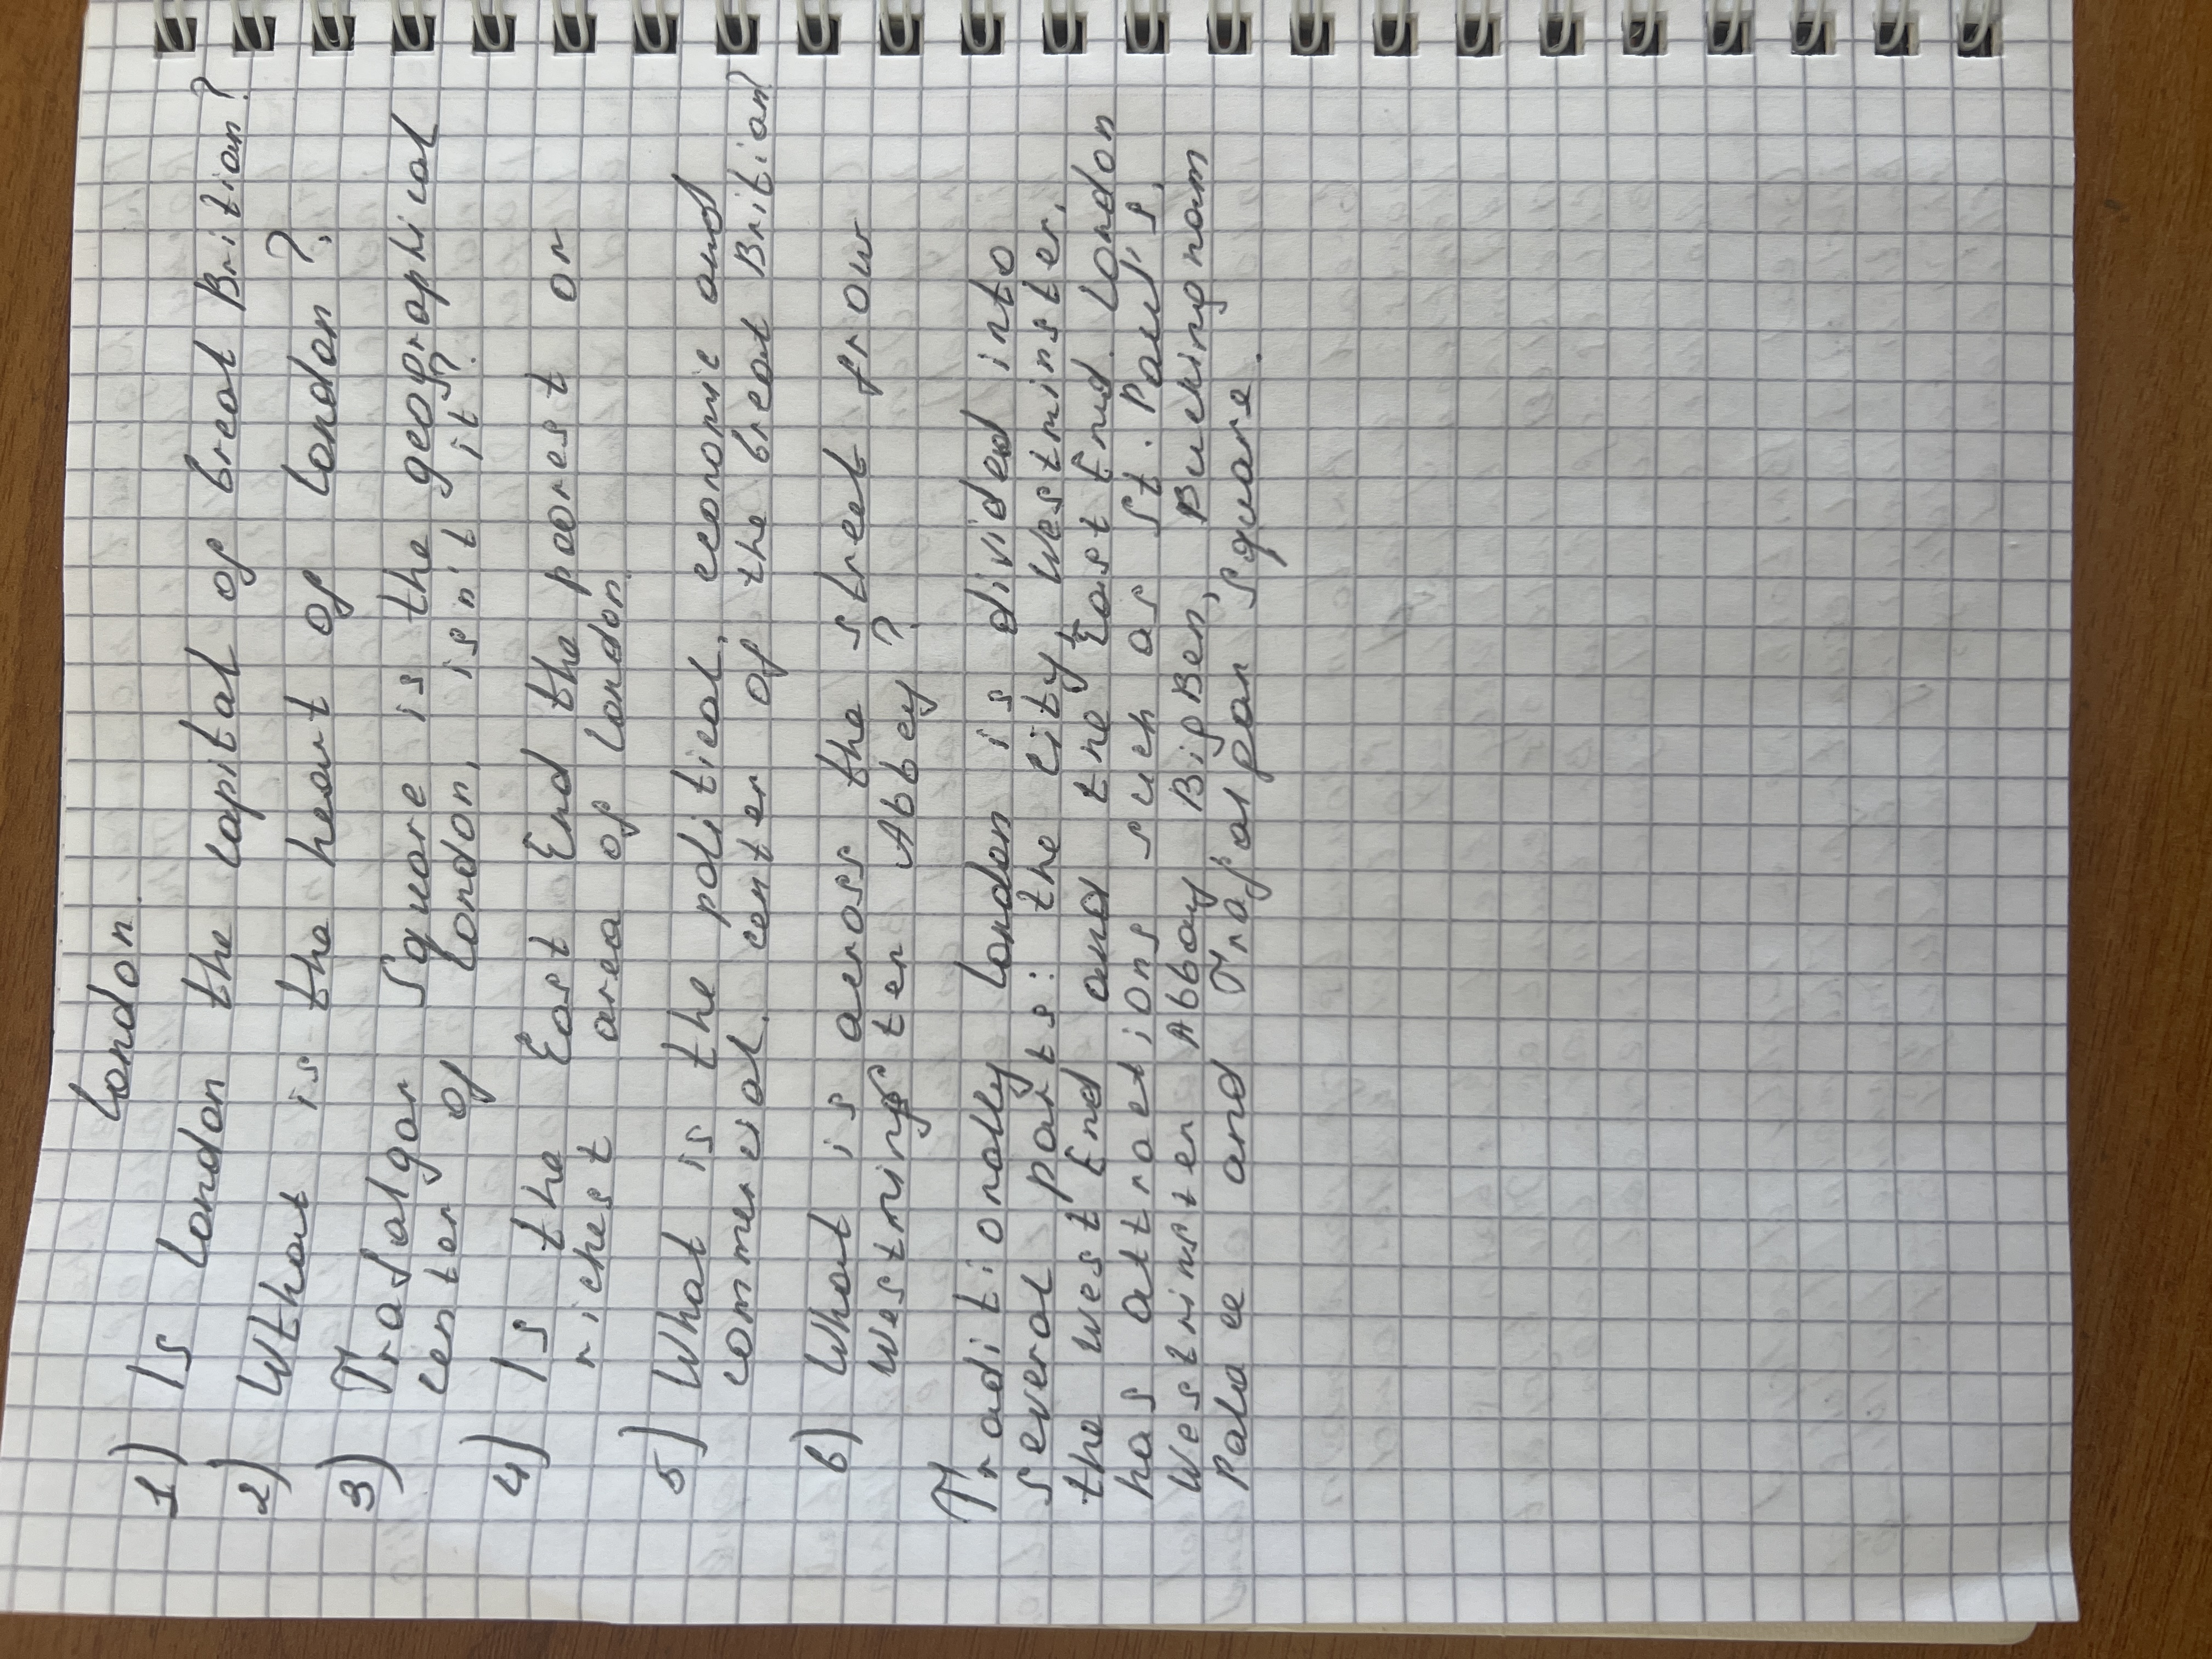 London.
1) Is London the capital of Great Britian?
2) What is the heart of London?
3) Trafalgar Square is the geographical
center of London, isn't it?
4) Is the East End the poorest or
richest area of London.
5) What is the political, economic and
commercial center of the Great Britian?
6) What is across the street from
Westminster Abbey?
Traditionally London is divided into
several parts: the City, Westminster,
the West End and the East End. London
has attractions such as St. Paul's,
Westminster Abbay Big Ben, Buckingnam
Palace and Trafalgar Square.